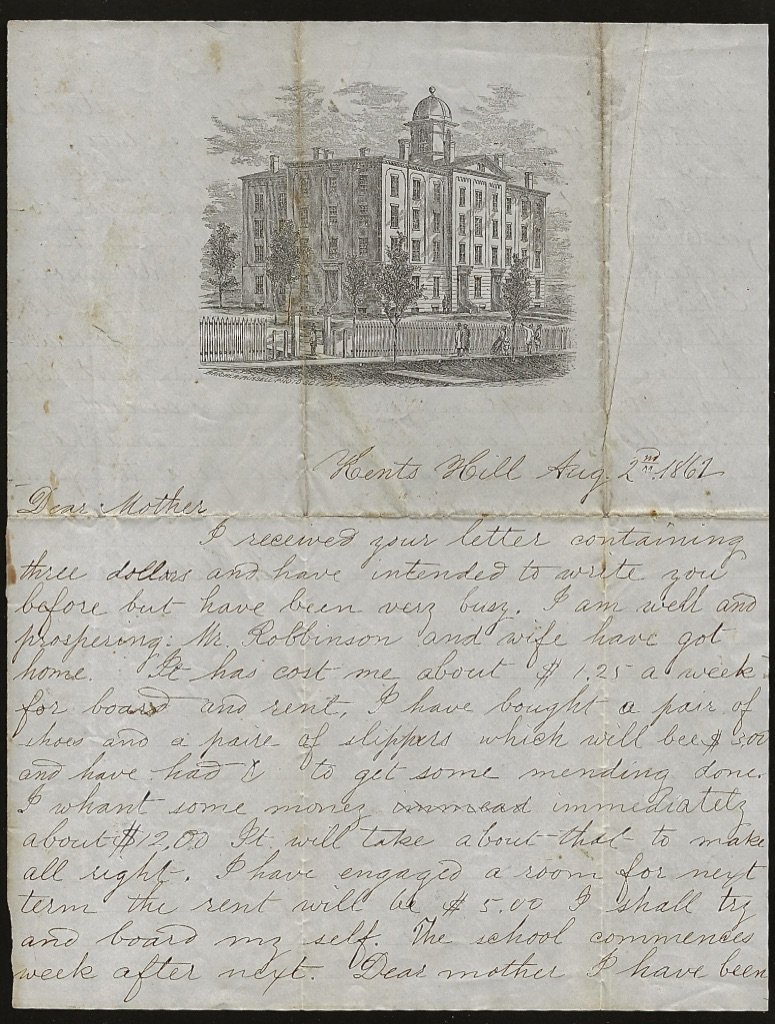 Kents Hill Aug. 2nd. 1861
Dear Mother
I received your letter containing
three dollars and have intended to write you
before but have been very busy. I am well and
prospering. Mr. Robbinson and wife have got
home. It has cost me about $1.25 a week
for board and rent, I have bought a pair of
shoes and a paire of slippers which will bee $3.00
and have had to get some mending done.
I whant some money immead immediately
about $12.00 It will take about that to make
all right. I have engaged a room for next
term the rent will be $5.00 I shall try
and board my self. The school commences
week after next. Dear mother I have been